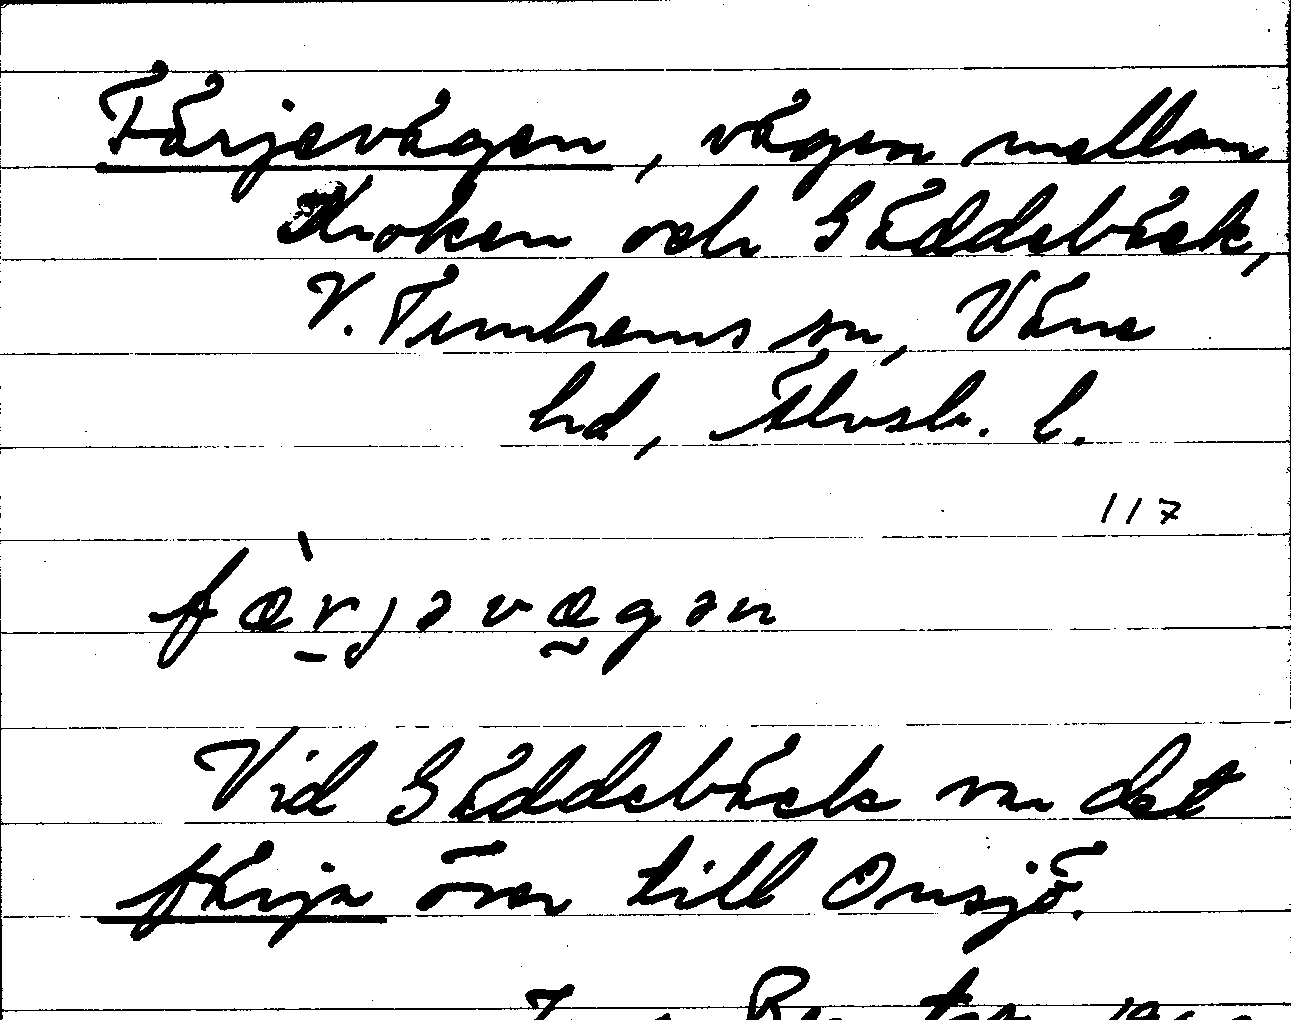 Färjevägen, vägen mellan
Kroken och Gäddebäck,
V. Tunhems sn, Väne
hd, Älvsb. l.
117
færjəvægən
Vid Gäddebäck var det
färja över till Onsjö.